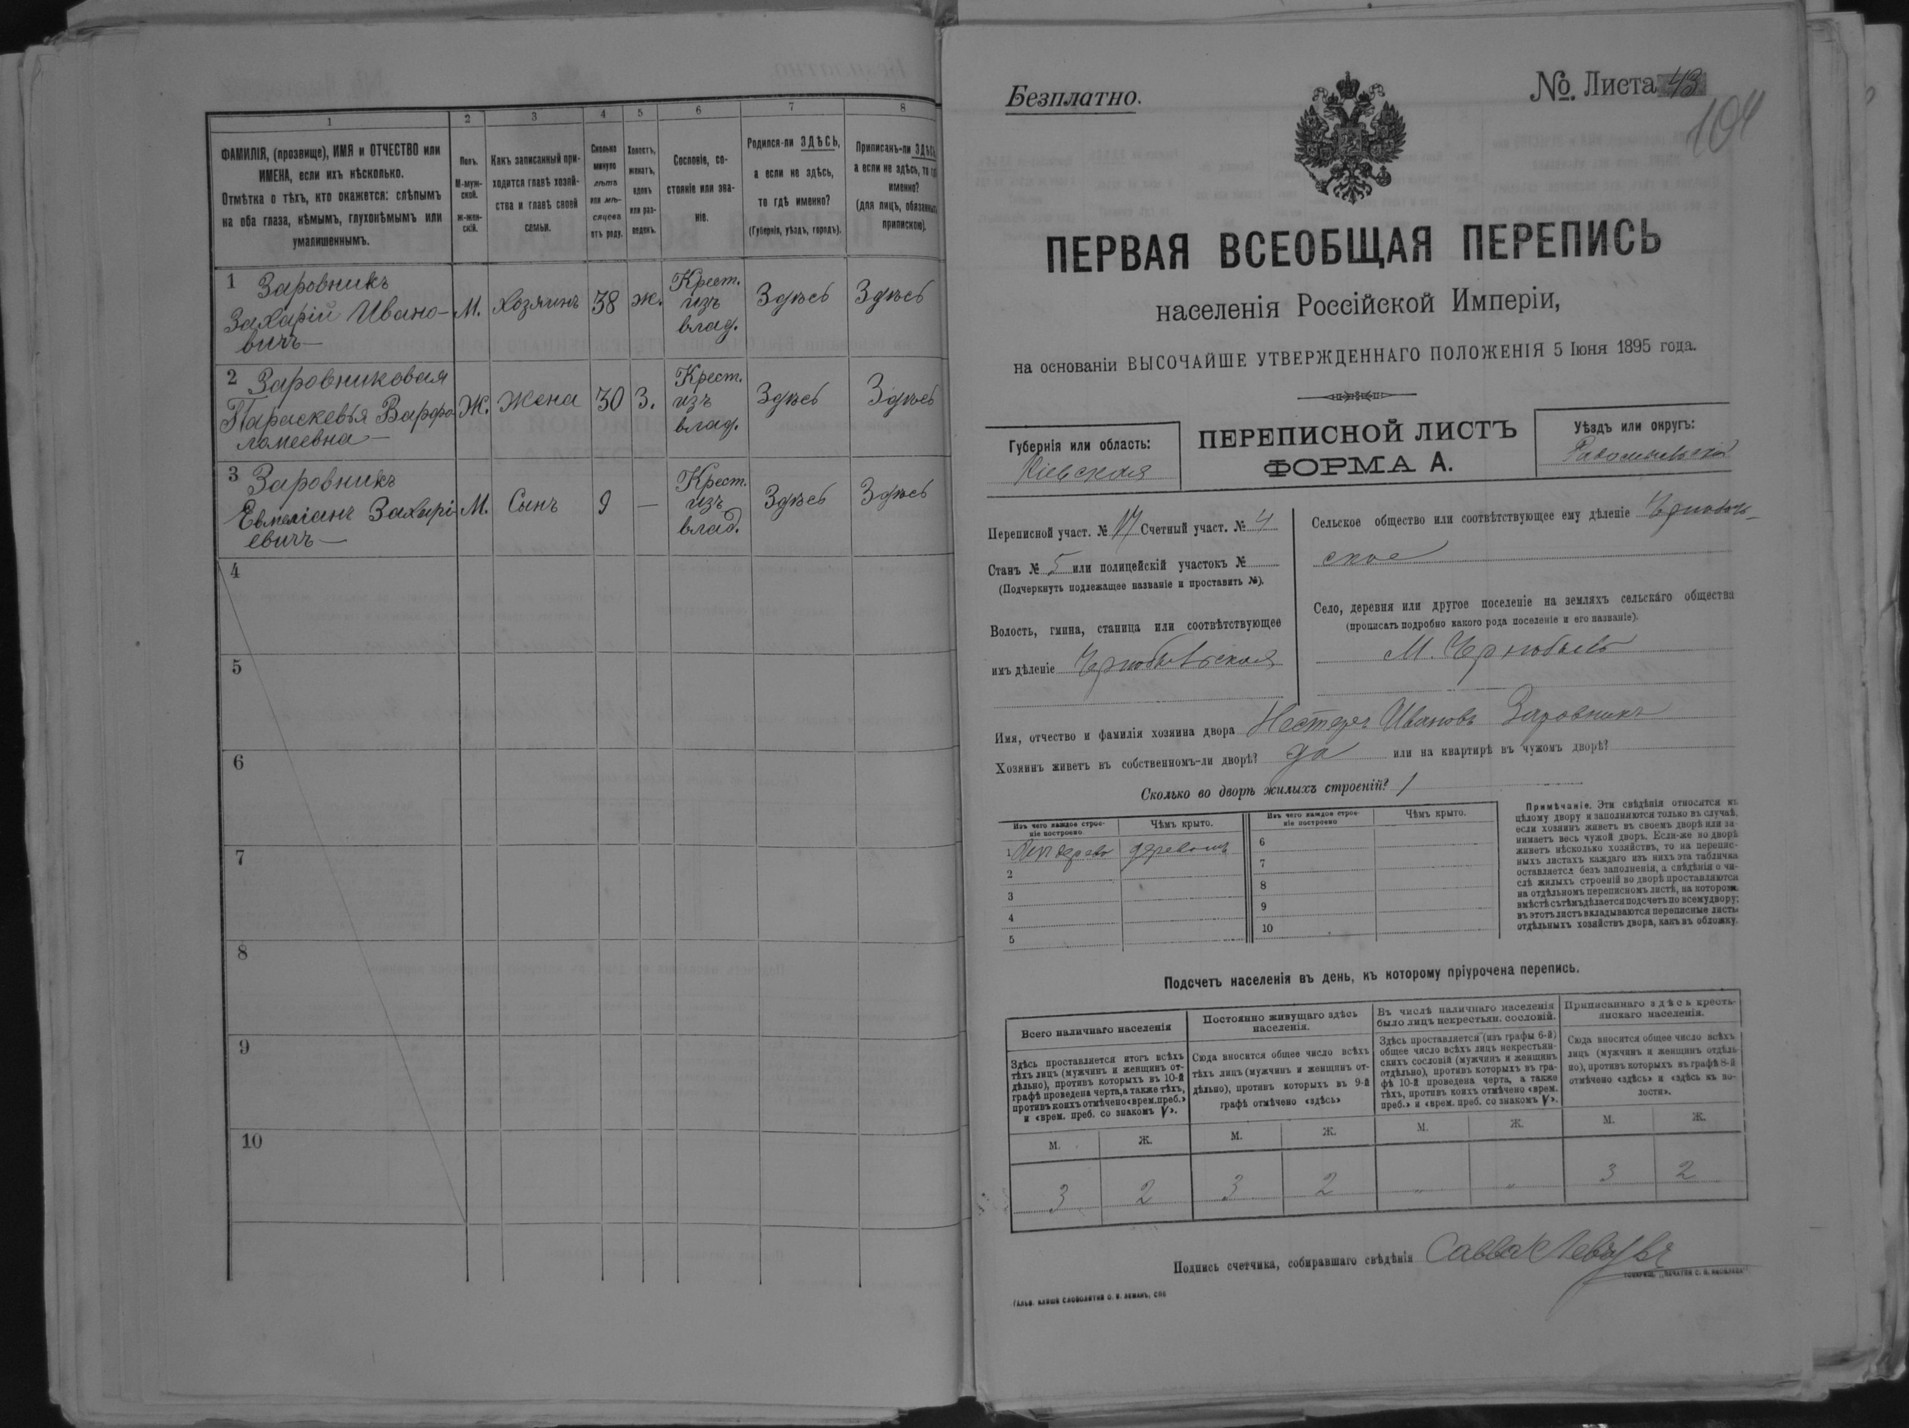 1
2
3
4
5
6
7
8
ФАМИЛІЯ, (прозвище), ИМЯ и ОТЧЕСТВО или
ИМЕНА, если ихъ нѣсколько.
Отмѣтка о тѣхъ, кто окажется: слѣпымъ
на оба глаза, нѣмымъ, глухонѣмымъ или
умалишеннымъ.
Полъ.
М-муж-
ской.
ж-жен-
скій.
Какъ записанный при-
ходится главѣ хозяй-
ства и главѣ своей
семьи.
Сколько
минуло
лѣтъ
или мѣ-
сяцевъ
отъ роду.
Холостъ,
женатъ,
вдовъ
или раз-
веденъ.
Сословіе, со-
стояніе или зва-
ніе.
Родился-ли ЗДѢСЬ,
а если не здѣсь,
то гдѣ именно?
(Губернія, уѣздъ, городъ).
Приписанъ-ли ЗДѢСЬ,
а если не здѣсь, то гдѣ
именно?
(для лицъ, обязанныхъ
припискою).
1 Заровникъ
Захарій Ивано-
вичъ
М.
Хозяинъ
38
ж.
Крест.
изъ
влад.
Здѣсь
Здѣсь
2 Заровниковая
Параскевья Варфо-
ломеевна
Ж.
Жена
30
З.
Крест.
изъ
влад.
Здѣсь
Здѣсь
3 Заровникъ
Евмеліанъ Захарі-
евичъ
М.
Сынъ
9
—
Крест.
изъ
влад.
Здѣсь
Здѣсь
4
5
6
7
8
9
10
Безплатно.
№ Листа 43
104
ПЕРВАЯ ВСЕОБЩАЯ ПЕРЕПИСЬ
населенія Россійской Имперіи,
на основаніи ВЫСОЧАЙШЕ УТВЕРЖДЕННАГО ПОЛОЖЕНІЯ 5 Іюня 1895 года.
Губернія или область:
Кіевская
ПЕРЕПИСНОЙ ЛИСТЪ
ФОРМА А.
Уѣздъ или округъ:
Радомысльскій
Переписной участ. № 17 Счетный участ. № 4
Станъ № 5 или полицейскій участокъ №
(Подчеркнуть подлежащее названіе и проставить №).
Волость, гмина, станица или соотвѣтствующее
имъ дѣленіе Чернобыльская
Сельское общество или соотвѣтствующее ему дѣленіе
ское
Село, деревня или другое поселеніе на земляхъ сельскаго общества
(прописать подробно какого рода поселеніе и его названіе).
М. Чернобыль
Имя, отчество и фамилія хозяина двора Нестеръ Ивановъ Заровникъ
Хозяинъ живетъ въ собственномъ-ли дворѣ? да или на квартирѣ въ чужомъ дворѣ?
Сколько во дворѣ жилыхъ строеній? 1
Изъ чего каждое строе-
ніе построено
Чѣмъ крыто.
Изъ чего каждое строе-
ніе построено
Чѣмъ крыто.
1 дерева деревомъ
2
3
4
5
6
7
8
9
10
Примѣчаніе. Эти свѣдѣнія относятся къ
цѣлому двору и заполняются только въ случаѣ,
если хозяинъ живетъ въ своемъ дворѣ или за-
нимаетъ весь чужой дворъ. Если-же во дворѣ
живетъ нѣсколько хозяйствъ, то на перепис-
ныхъ листахъ каждаго изъ нихъ эта табличка
оставляется безъ заполненія, а свѣдѣнія о чи-
слѣ жилыхъ строеній во дворѣ проставляются
на отдѣльномъ переписномъ листѣ, на которомъ
вмѣстѣ съ тѣмъ дѣлается подсчетъ по всему двору;
въ этотъ листъ вкладываются переписные листы
отдѣльныхъ хозяйствъ двора, какъ въ обложку.
Подсчетъ населенія въ день, къ которому пріурочена перепись.
Всего наличнаго населенія
Постоянно живущаго здѣсь
населенія.
Въ числѣ наличнаго населенія
было лицъ некрестьян. сословій.
Приписаннаго здѣсь кресть-
янскаго населенія.
Здѣсь проставляется итогъ всѣхъ
тѣхъ лицъ (мужчинъ и женщинъ от-
дѣльно), противъ которыхъ въ 10-й
графѣ проведена черта, а также тѣхъ,
противъ коихъ отмѣчено «врем. преб.»
и «врем. преб. со знакомъ V».
Сюда вносится общее число всѣхъ
тѣхъ лицъ (мужчинъ и женщинъ от-
дѣльно), противъ которыхъ въ 9-й
графѣ отмѣчено «здѣсь»
Здѣсь проставляется (изъ графы 6-й)
общее число всѣхъ лицъ некрестьян-
скихъ сословій (мужчинъ и женщинъ
отдѣльно), противъ которыхъ въ гра-
фѣ 10-й проведена черта, а также
тѣхъ, противъ коихъ отмѣчено «врем.
преб.» и «врем. преб. со знакомъ V».
Сюда вносится общее число всѣхъ
лицъ (мужчинъ и женщинъ отдѣль-
но), противъ которыхъ въ графѣ 8-й
отмѣчено «здѣсь» и «здѣсь въ во-
лости».
М. Ж. М. Ж. М. Ж. М. Ж.
3 2 3 2 „ „ 3 2
Подпись счетчика, собиравшаго свѣдѣнія Савва